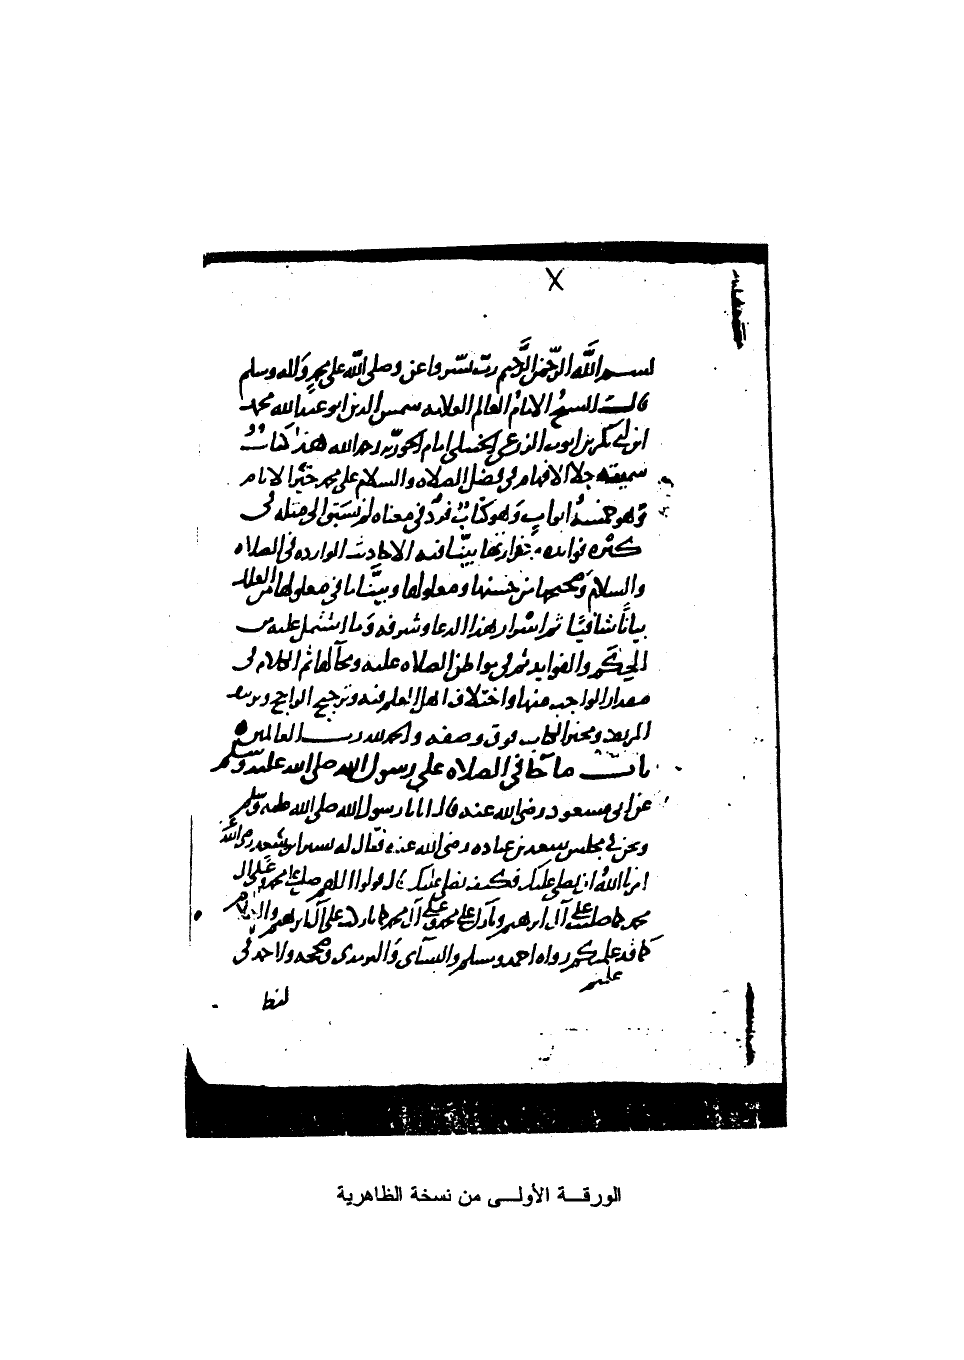 بسم الله الرحمن الرحيم رب يسر واعن وصلى الله على محمد واله وسلم
قال الشيخ الامام العالم العلامه شمس الدين ابو عبد الله محمد
ابن ابي بكر بن ايوب الزرعي الحنبلي امام الجوزيه رحمه الله هذا كتاب
سميته جلا الافهام في فضل الصلاه والسلام على محمد خير الانام
وهو خمسة ابواب وهو كتاب فرد في معناه لم نسبق الى مثله في
كثره فوايده وغزارتها بينا فيه الاحاديث الوارده في الصلاه
والسلام وصحيحها من حسنها ومعلولها وبينا ما في معلولها من العلل
بيانا شافيا ثم اسرار هذا الدعا وشرفه وما اشتمل عليه من
الحكم والفوايد ثم في مواطن الصلاه عليه ومحالها ثم الكلام في
مقدار الواجب منها واختلاف اهل العلم فيه وترجيح الراجح وتزييف
المزيف ومخبر الكتاب فوق وصفه والحمد لله رب العالمين
باب ما جا في الصلاه على رسول الله صلى الله عليه وسلم
عن ابي مسعود رضي الله عنه قال اتانا رسول الله صلى الله عليه وسلم
ونحن في مجلس سعد بن عباده رضي الله عنه فقال له بشير بن سعد رضي الله عنه
امرنا الله ان نصلي عليك فكيف نصلي عليك قال قولوا اللهم صل على محمد وعلى ال
محمد كما صليت على آل ابرهيم وبارك على محمد وعلى آل محمد كما باركت على آل ابرهيم والسلام
كما قد علمتم رواه احمد ومسلم والنسآى والترمذي وصححه ولاحمد في
لفظ
الورقــة الأولــى من نسخة الظاهرية